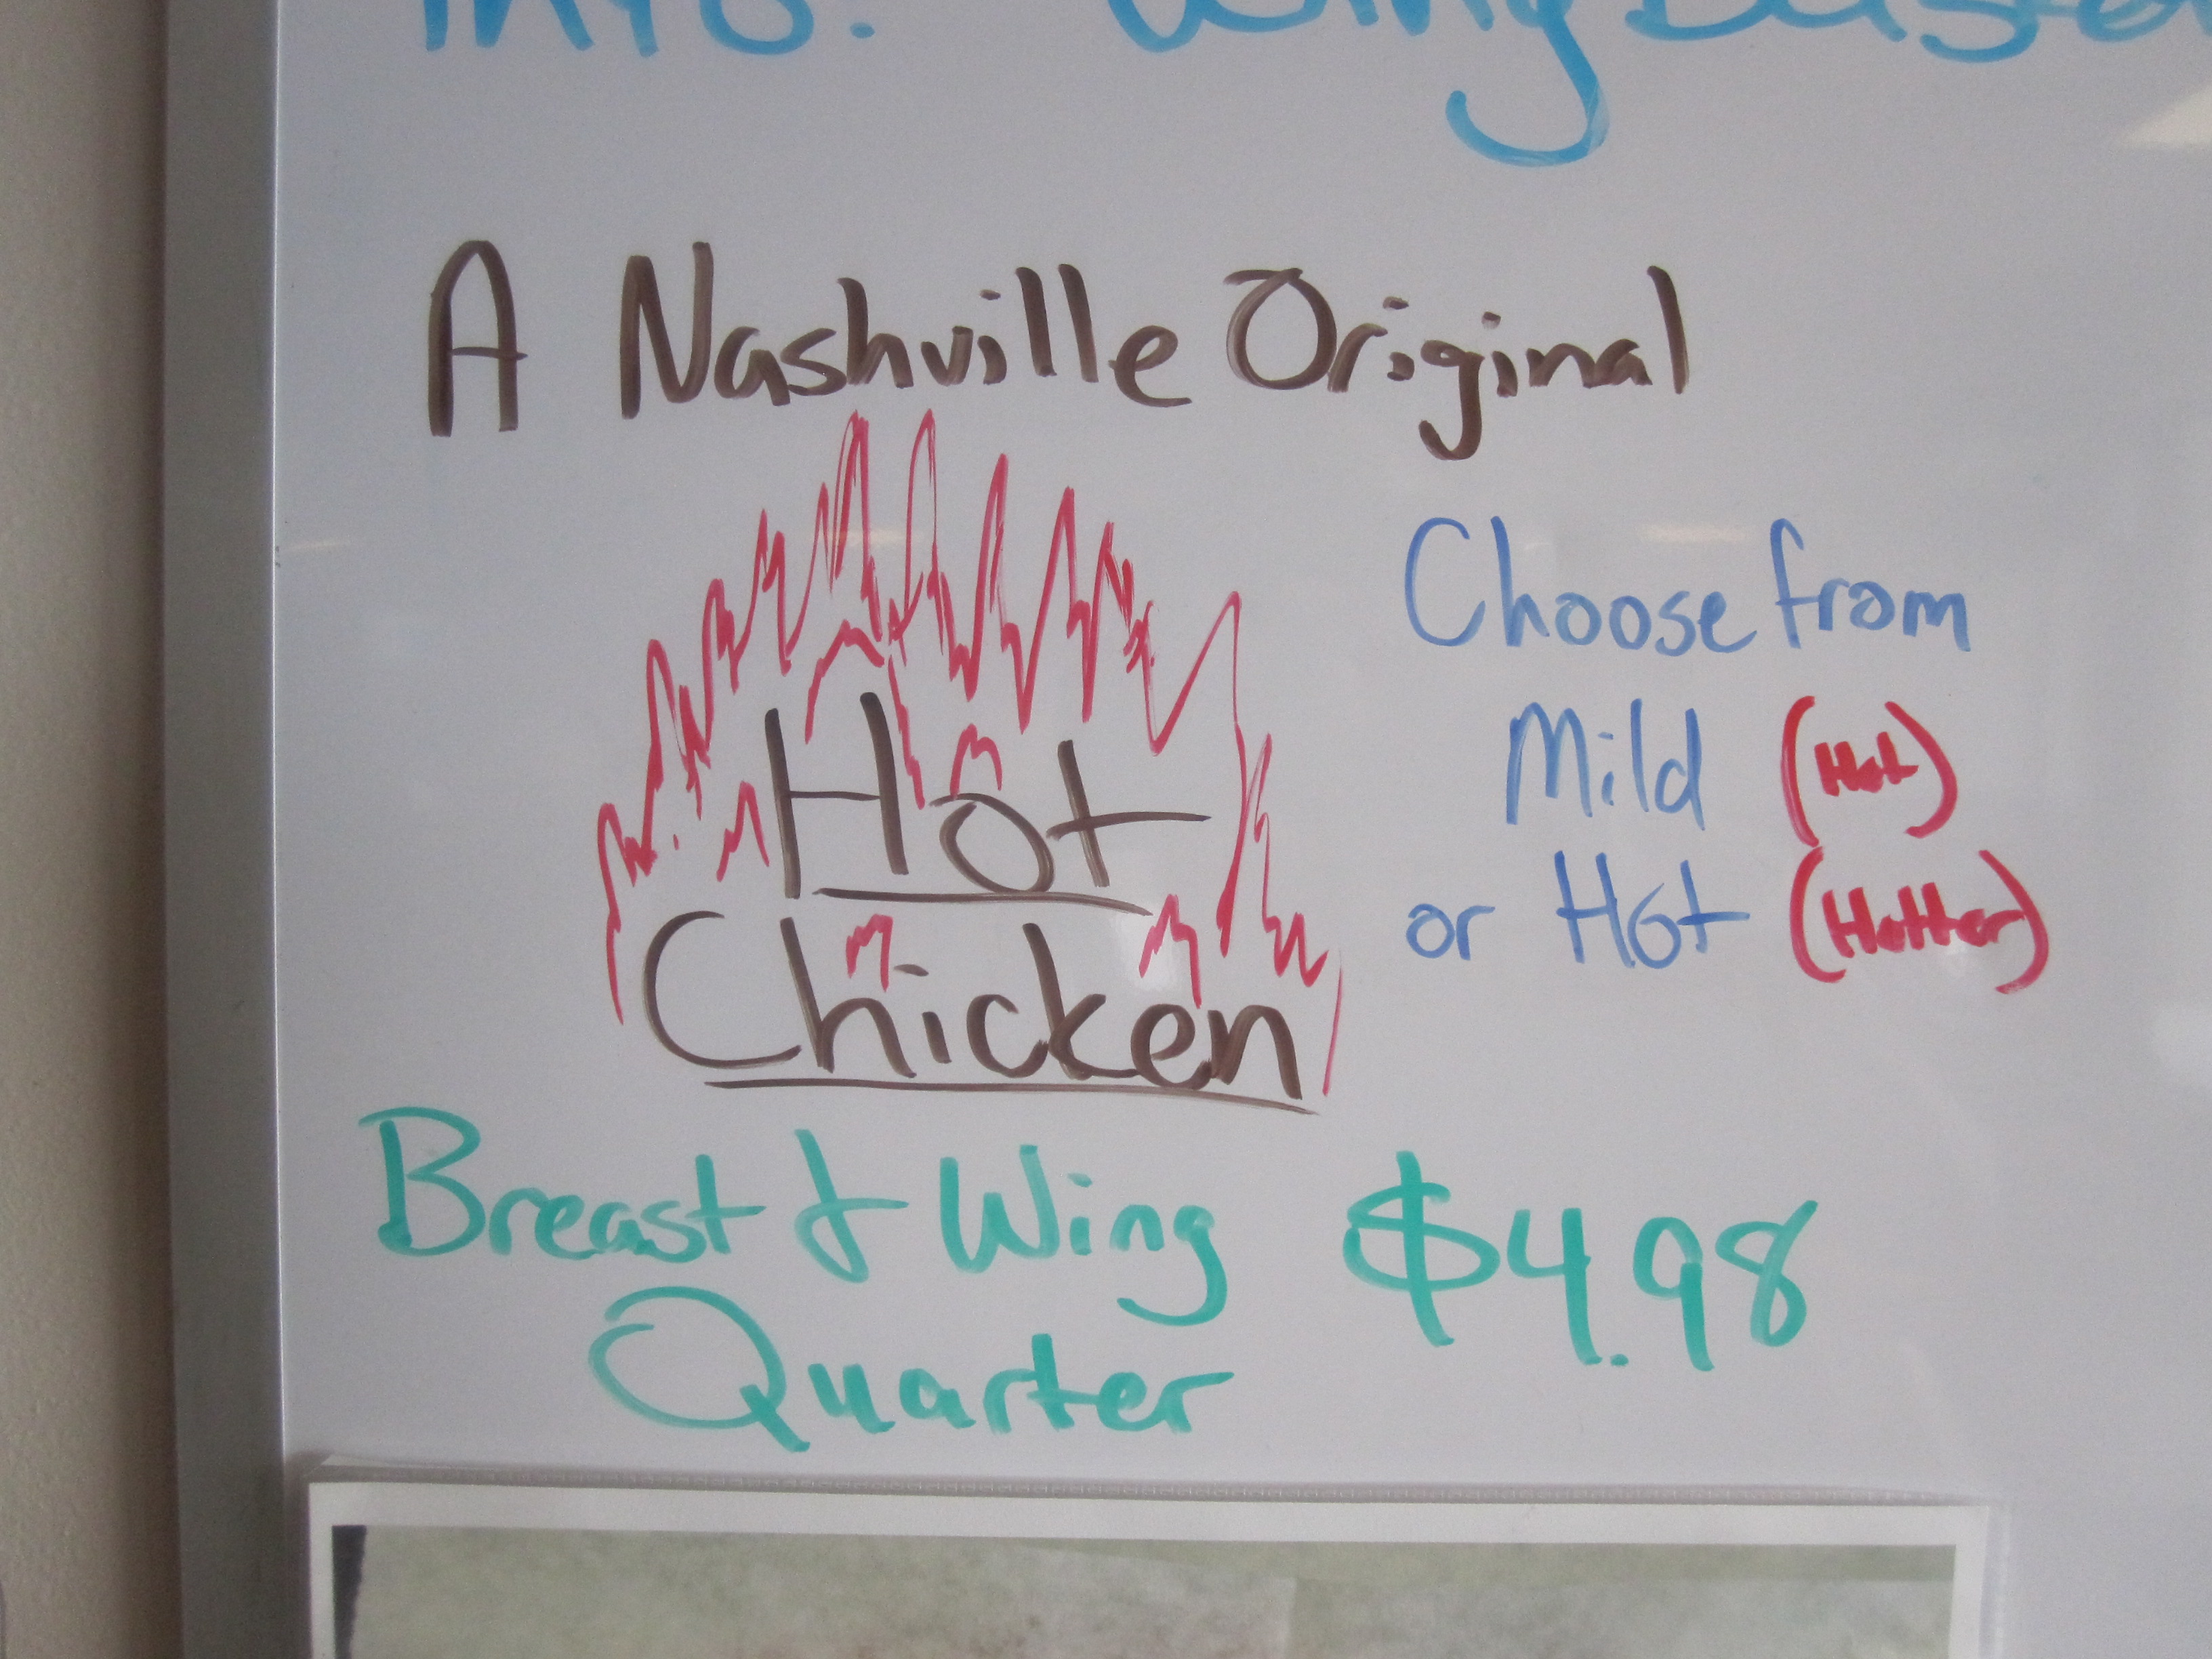 A Nashville Original
Hot
Chicken
Choose from
Mild (Hot)
or Hot (Hotter)
Breast & Wing
Quarter
$4.98